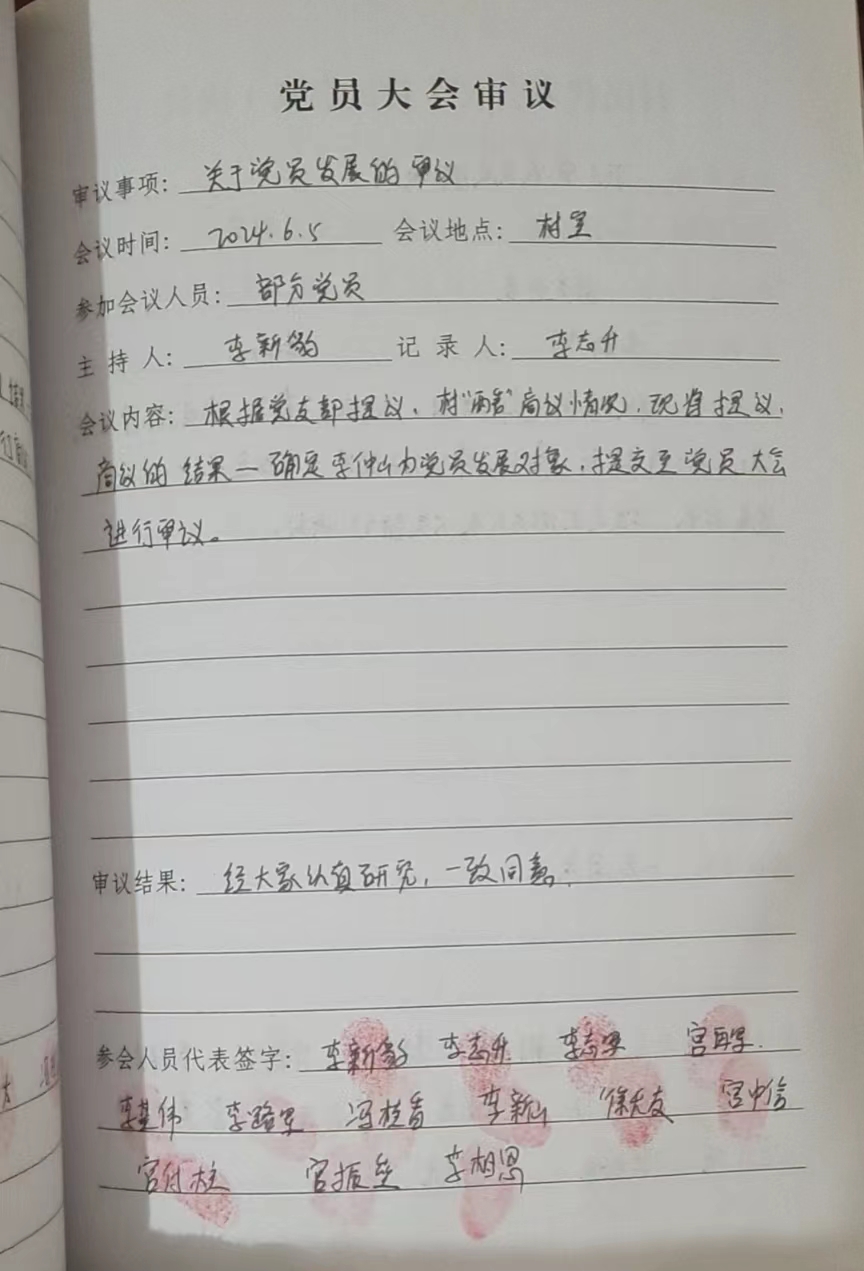 党员大会审议
审议事项: 关于党员发展的审议
会议时间: 2024.6.5 会议地点: 村室
参加会议人员: 部分党员
主持人: 李新豹 记录人: 李志升
会议内容: 根据党支部提议、村"两委"商议情况,现将提议、
商议的结果—确定李仲山为党员发展对象,提交至党员大会
进行审议。
审议结果: 经大家认真研究,一致同意。
参会人员代表签字: 李新豹 李志升 李志军
李其伟 李路军 冯桂香 李新山 徐大友 宫中信
宫付柱 宫振 李相恩